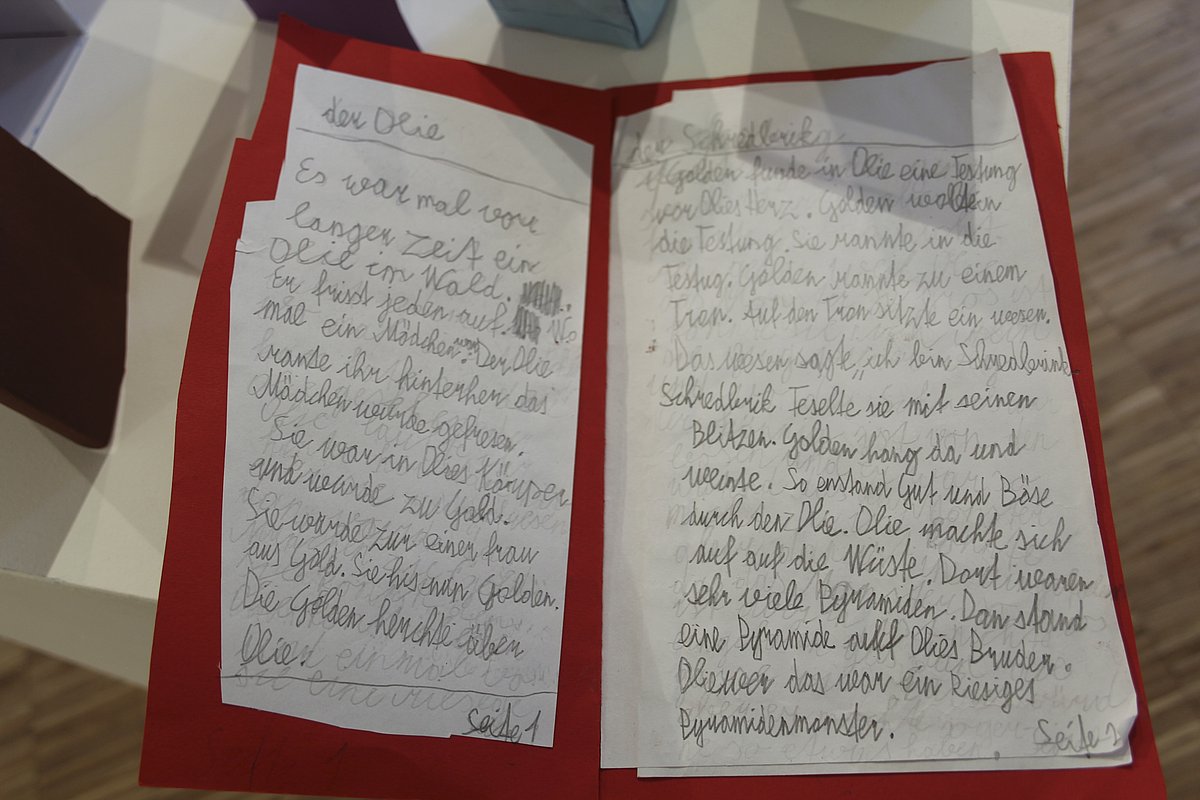 der Olie
Es war mal vor
langer Zeit ein
Olie im Wald.
Er frisst jeden auf. Wo
mal ein Mädchen war. Der Olie
rante ihr hinterher das
Mädchen wurde gefresen.
Sie war in Olies Körper
und wurde zu Gold.
Sie wurde zur einer frau
aus Gold. Sie his nun Golden.
Die Golden herschte über
Olie.
Seite 1
der Schredlerik
Golden funde in Olie eine Festung
vor Olies Herz. Golden wollte in
die Festung. Sie rannte in die
Festug. Golden rannte zu einem
Tron. Auf den Tron sitzte ein wesen.
Das wesen sagte, ich bin Schredlerink
Schredlerik Feselte sie mit seinen
Blitzen. Golden hang da und
weinte. So enstand Gut und Böse
durch den Olie. Olie machte sich
auf auf die Wüste. Dort waren
sehr viele Pyramiden. Dan stand
eine Pyramide auf Olies Bruder.
das war ein Riesiges
Pyramidenmonster.
Seite 2